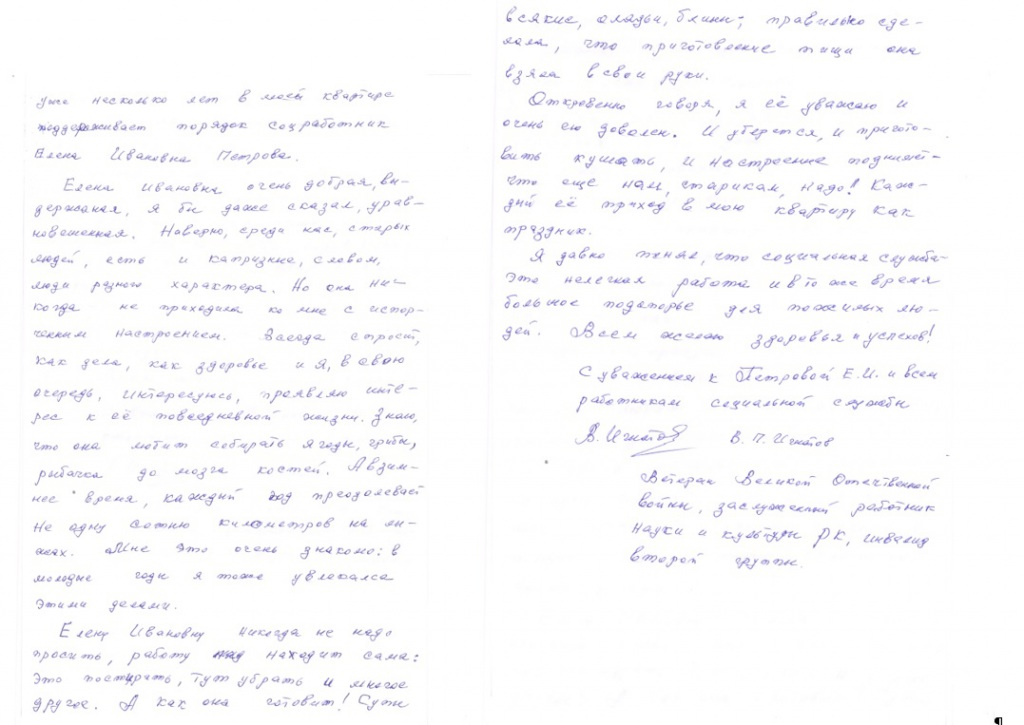 уже несколько лет в моей квартире
поддерживает порядок соцработник
Елена Ивановна Петрова.
Елена Ивановна очень добрая, вы-
держаная, я бы даже сказал, урав-
новешенная. Наверно, среди нас, старых
людей, есть и капризные, словом,
люди разного характера. Но она ни-
когда не приходила ко мне с испор-
ченным настроением. Всегда спросит,
как дела, как здоровье и я, в свою
очередь, интересуюсь, проявляю инте-
рес к её повседневной жизни. Знаю,
что она любит собирать ягоды, грибы,
рыбачка до мозга костей. А в зим-
нее время, каждый год преодолевает
не одну сотню километров на лы-
жах. Мне это очень знакомо: в
молодые годы я тоже увлекался
этими делами.
Елену Ивановну никогда не надо
просить, работу находит сама:
это постирать, тут убрать и многое
другое. А как она готовит! Супы
всякие, оладьи, блины; правильно сде-
лала, что приготовление пищи она
взяла в свои руки.
Откровенно говоря, я её уважаю и
очень ею доволен. И уберется, и пригото-
вить кушать, и настроение поднимет-
что еще нам, старикам, надо! Каж-
дый её приход в мою квартиру как
праздник.
Я давно понял, что социальная служба-
это нелегкая работа и в то же время
большое подспорье для пожилых лю-
дей. Всем желаю здоровья и успехов!
С уважением к Петровой Е.И. и всем
работникам социальной службы
В. Игнатов В. П. Игнатов
Ветеран Великой Отечественной
войны, заслуженный работник
науки и культуры РК, инвалид
второй группы.
¶